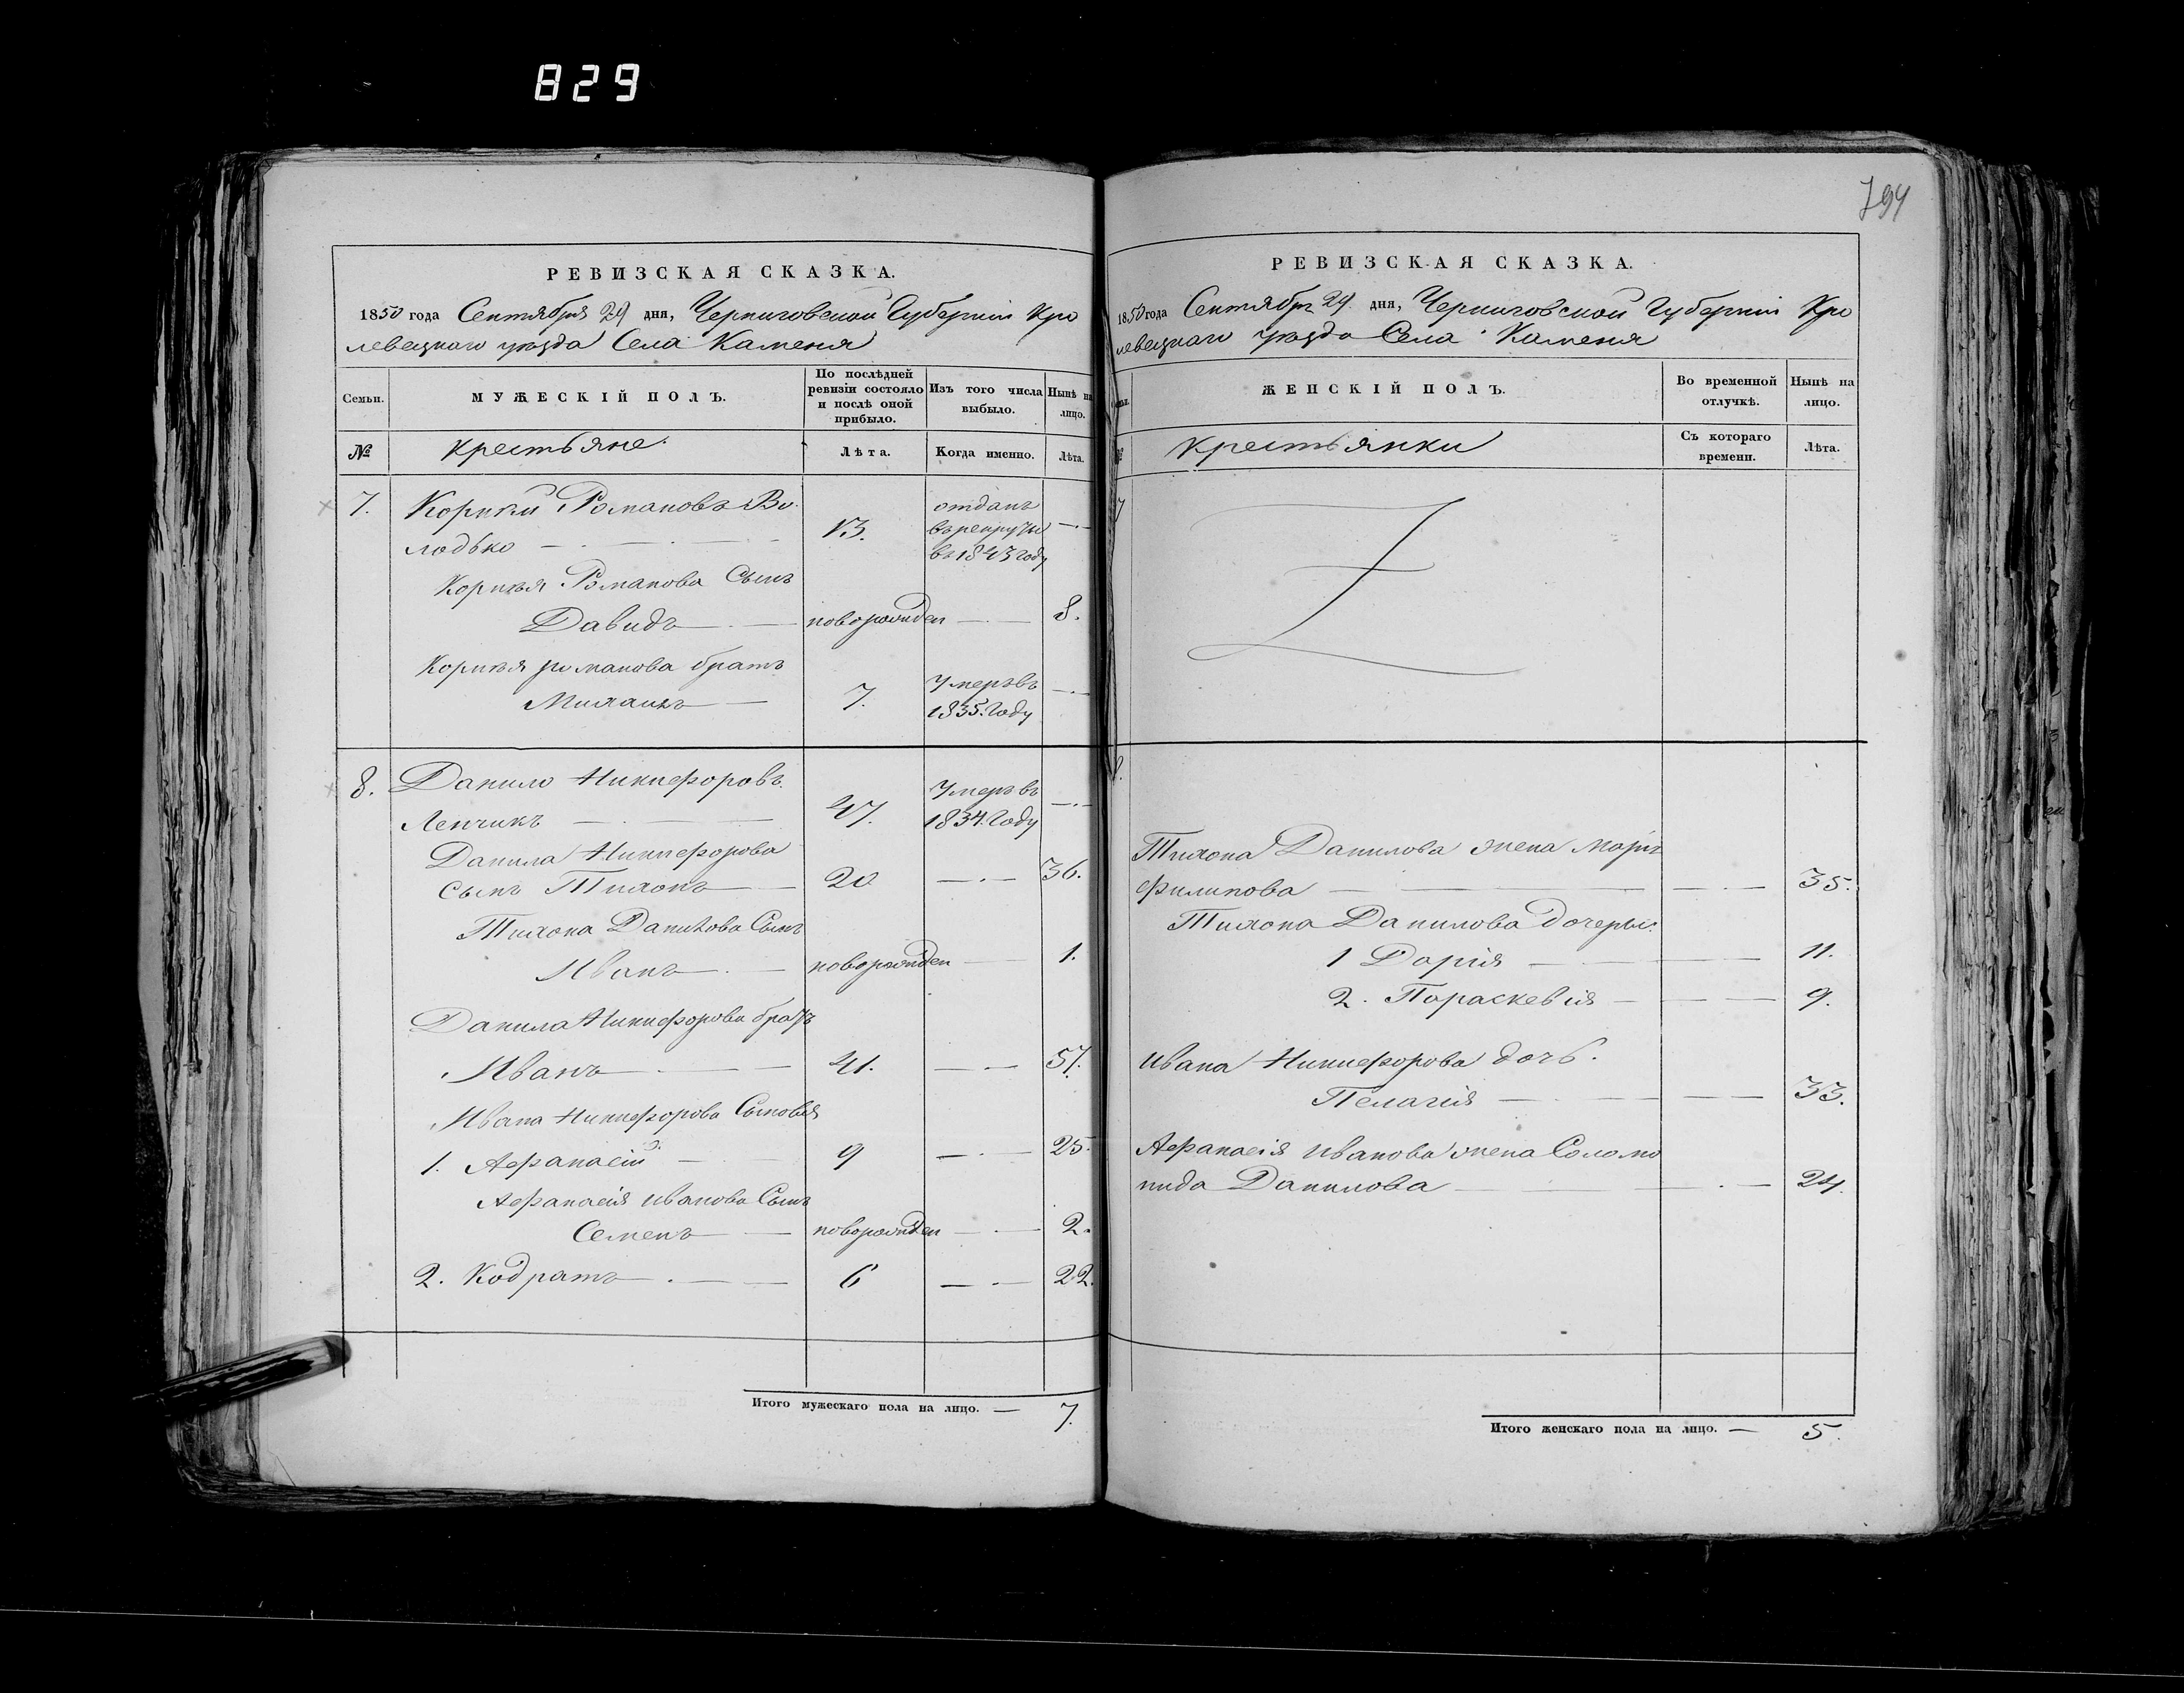 829
794
РЕВИЗСКАЯ СКАЗКА.
1850 года Сентября 29 дня, Черниговской Губернии Кро
левецкаго уезда Села Каменя
Семьи. МУЖЕСКІЙ ПОЛЪ. По послѣдней ревизіи состояло и послѣ оной прибыло. Изъ того числа выбыло. Нынѣ на лицо.
№ Крестьяне. Лѣта. Когда именно. Лѣта.
7. Корнѣй Романовъ Во 13. отданъ
лодько въ рекруты
въ 1843 году
Корнѣя Романова Сынъ
Давидъ новорожден 8.
Корнѣя романова братъ
Михаилъ 7. Умеръ въ
1835. Году
8. Данило Никифоровъ Умеръ въ
Ленчикъ 47. 1834. Году
Данила Никифорова
Сынъ Тихонъ 20 36.
Тихона Данилова Сынъ
Иванъ новорожден 1.
Данила Никифорова братъ
Иванъ 41. 57.
Ивана Никифорова Сыновья
1. Афанасій 9 25.
Афанасія Иванова Сынъ
Семенъ новорожден 2.
2. Кодратъ 6 22.
Итого мужескаго пола на лицо. — 7.
РЕВИЗСКАЯ СКАЗКА.
1850 года Сентября 29 дня, Черниговской Губернии Кро
левецкаго уезда Села Каменя
ЖЕНСКІЙ ПОЛЪ. Во временной отлучкѣ. Нынѣ на лицо.
№ Крестьянки Съ котораго времени. Лѣта.
7
8.
Тихона Данилова жена Марія
Филипова 35.
Тихона Данилова дочеры:
1 Дарія 11.
2. Параскевія 9.
Ивана Никифорова дочь.
Пелагія 33.
Афанасія Иванова жена Соломо
нида Данилова 24.
Итого женскаго пола на лицо. — 5.